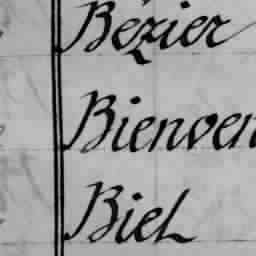 Bézier
Bienven
Biel